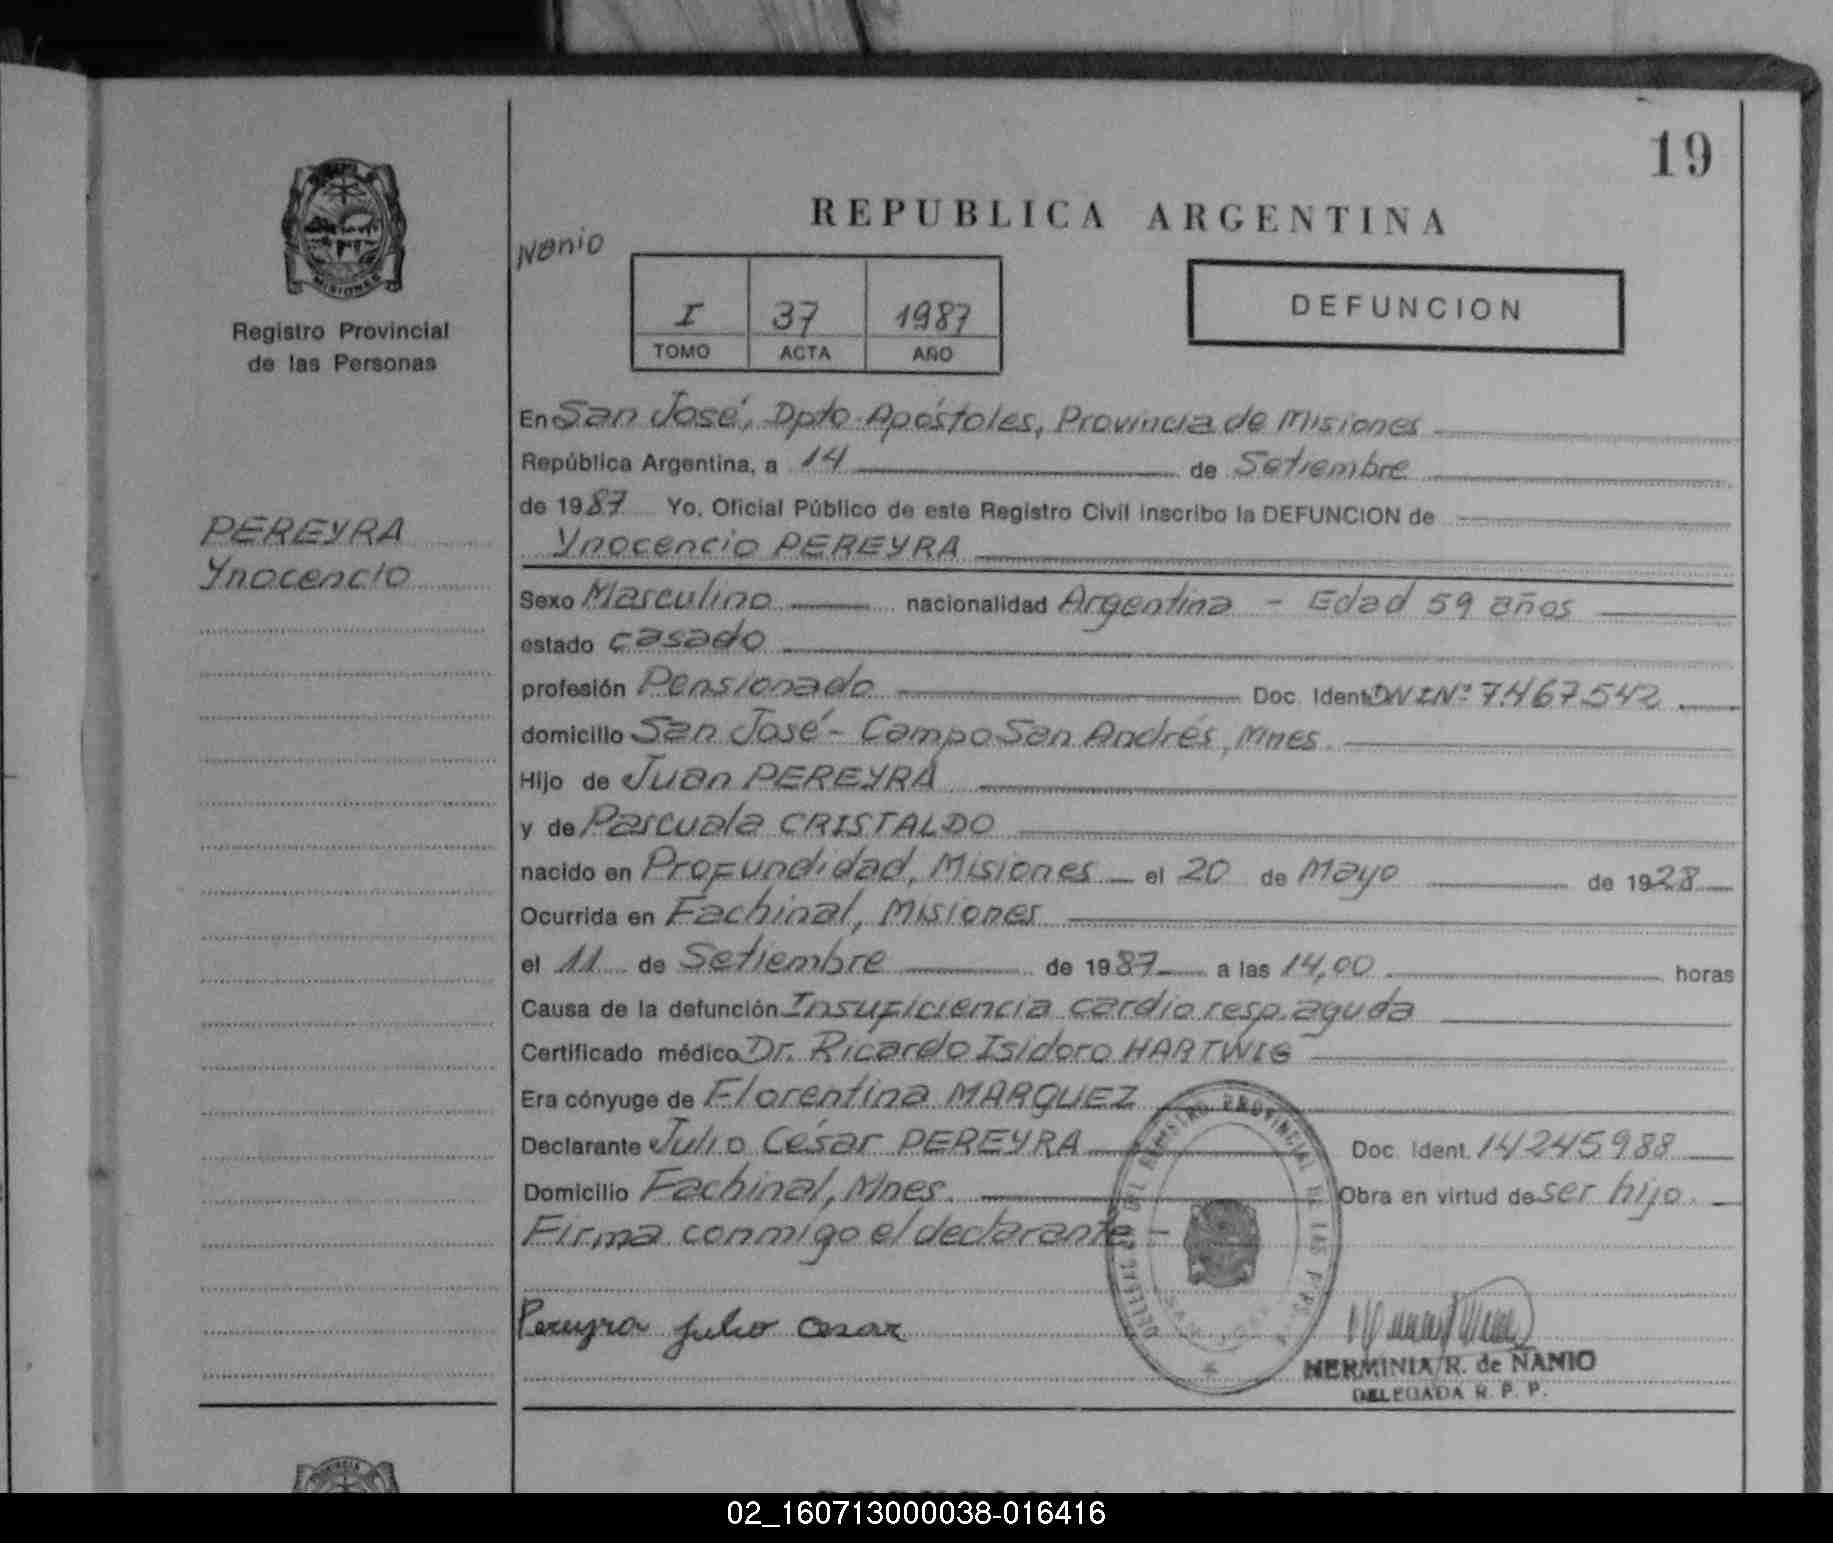 19
REPUBLICA ARGENTINA
Nanio
MISIONES
Registro Provincial
de las Personas
I 37 1987
TOMO ACTA AÑO
DEFUNCION
PEREYRA
Ynocencio
En San José, Dpto. Apóstoles, Provincia de Misiones
República Argentina, a 14 de Setiembre
de 1987 Yo, Oficial Público de este Registro Civil inscribo la DEFUNCION de
Ynocencio PEREYRA
Sexo Masculino nacionalidad Argentina - Edad 59 años
estado casado
profesión Pensionado Doc. Ident. DNI Nº 7.467542
domicilio San José - Campo San Andrés, Mnes.
Hijo de Juan PEREYRA
y de Pascuala CRISTALDO
nacido en Profundidad, Misiones el 20 de Mayo de 1928
Ocurrida en Fachinal, Misiones
el 11 de Setiembre de 1987 a las 14,00 horas
Causa de la defunción Insuficiencia cardio resp. aguda
Certificado médico Dr. Ricardo Isidoro HARTWIG
Era cónyuge de Florentina MARQUEZ
Declarante Julio César PEREYRA Doc. Ident. 14245988
Domicilio Fachinal, Mnes. Obra en virtud de ser hijo.
Firma conmigo el declarante -
Pereyra Julio Cesar
HERMINIA R. de NANIO
DELEGADA R. P. P.
02_160713000038-016416